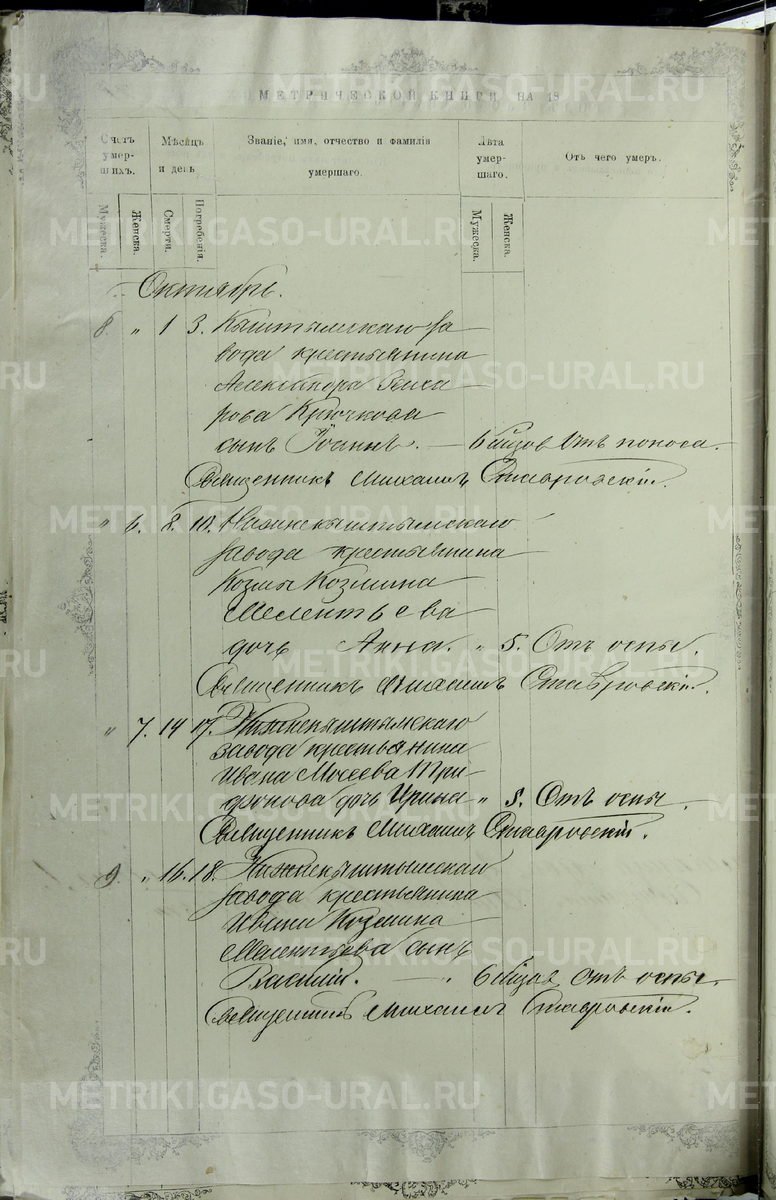 МЕТРИЧЕСКОЙ КНИГИ НА 18
Счетъ умершихъ.
Мѣсяцъ и день
Званіе, имя, отчество и фамилія умершаго.
Лѣта умершаго.
Отъ чего умеръ.
Мужеска.
Женска.
Смерти.
Погребенія.
Мужеска.
Женска.
Октябрь.
8. " 1 3. Кыштымскаго за
вода крестьянина
Александра
рова Крючкова
сынъ Іоаннъ. 6 Отъ поноса.
Священникъ Михаилъ Ставровскій.
" 6. 8. 10. Нижнекыштымскаго
завода крестьянина
Козмы Козмина
Мелентьева
дочь Анна. " 5. Отъ оспы.
Священникъ Михаилъ Ставровскій.
" 7. 14 17. Нижнекыштымскаго
завода крестьянина
Ивана Мосеева Три-
фонова дочь Ирина " 5. Отъ оспы.
Священникъ Михаилъ Ставровскій.
9. " 16. 18. Нижнекыштымскаго
завода крестьянина
Ивана Козмина
Мелентьева сынъ
Василій. " 6 отъ оспы.
Священникъ Михаилъ Ставровскій.
METRIKI.GASO-URAL.RU